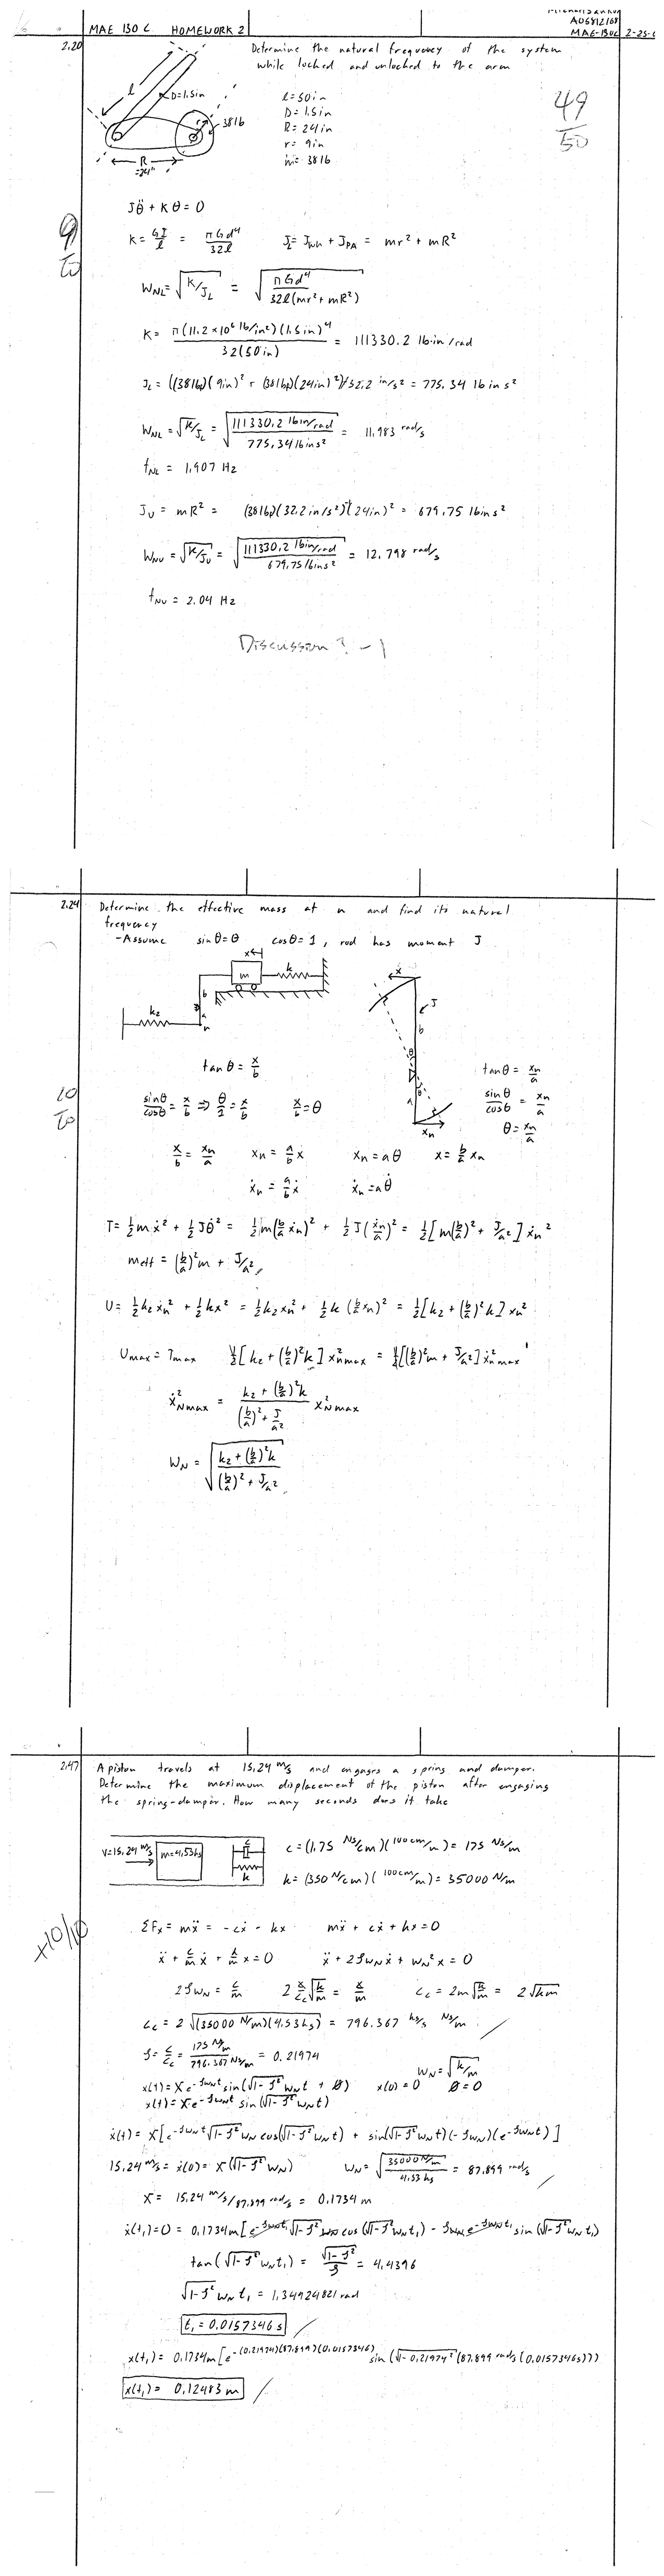 MAE 130 C HOMEWORK 2
A05812168
MAE-130C 2-25-
2.20
Determine the natural frequency of the system
while locked and unlocked to the arm
l
D=1.5in
r
38lb
R
=24"
l=50in
D=1.5in
R=24in
r=9in
m=38lb
49/50
Jθ̈ + Kθ = 0
9/10
K = GJ/l = πGd⁴/32l J_L = J_wh + J_PA = mr² + mR²
W_NL = √(K/J_L) = √(πGd⁴/32l(mr²+mR²))
K = π(11.2×10⁶ lb/in²)(1.5in)⁴/32(50in) = 111330.2 lb·in/rad
J_L = ((38lb)(9in)² + (38lb)(24in)²)/32.2 in/s² = 775.34 lb in s²
W_NL = √(K/J_L) = √(111330.2 lbin/rad / 775.34 lbins²) = 11.983 rad/s
f_NL = 1.907 Hz
J_U = mR² = (38lb)(32.2 in/s²)⁻¹(24in)² = 679.75 lbins²
W_NU = √(K/J_U) = √(111330.2 lbin/rad / 679.75 lbins²) = 12.798 rad/s
f_NU = 2.04 Hz
Discussion? -1
2.24
Determine the effective mass at n and find its natural
frequency
-Assume sinθ=θ cosθ=1, rod has moment J
x
m
k
b
a
n
k₂
x
J
b
θ
a
x_n
10/10
tanθ = x/b
sinθ/cosθ = x/b ⇒ θ/1 = x/b x/b = θ
tanθ = x_n/a
sinθ/cosθ = x_n/a
θ = x_n/a
x/b = x_n/a x_n = a/b x x_n = aθ x = b/a x_n
ẋ_n = a/b ẋ ẋ_n = aθ̇
T = ½mẋ² + ½Jθ̇² = ½m(b/a ẋ_n)² + ½J(ẋ_n/a)² = ½[m(b/a)² + J/a²]ẋ_n²
meff = (b/a)²m + J/a²
U = ½k₂x_n² + ½kx² = ½k₂x_n² + ½k(b/a x_n)² = ½[k₂ + (b/a)²k]x_n²
Umax = Tmax ½[k₂ + (b/a)²k]x²_nmax = ½[(b/a)²m + J/a²]ẋ²_nmax
ẋ²_Nmax = (k₂ + (b/a)²k)/((b/a)² + J/a²) x²_Nmax
W_N = √((k₂ + (b/a)²k)/((b/a)² + J/a²))
2.47
A piston travels at 15.24 m/s and engages a spring and damper.
Determine the maximum displacement of the piston after engaging
the spring-damper. How many seconds does it take
V=15.24 m/s
m=4.53kg
c
k
c = (1.75 Ns/cm)(100cm/m) = 175 Ns/m
k = (350 N/cm)(100cm/m) = 35000 N/m
+10/10
ΣFx = mẍ = -cẋ - kx mẍ + cẋ + kx = 0
ẍ + c/m ẋ + k/m x = 0 ẍ + 2ζω_N ẋ + ω_N² x = 0
2ζω_N = c/m 2 c/c_c √(k/m) = c/m c_c = 2m√(k/m) = 2√(km)
c_c = 2√((35000 N/m)(4.53kg)) = 796.367 kg/s Ns/m
ζ = c/c_c = 175 Ns/m / 796.367 Ns/m = 0.21974
W_N = √(k/m)
x(t) = Xe^(-ζω_N t) sin(√(1-ζ²)ω_N t + Ø) x(0) = 0 Ø = 0
x(t) = Xe^(-ζω_N t) sin(√(1-ζ²)ω_N t)
ẋ(t) = X[e^(-ζω_N t)√(1-ζ²)ω_N cos(√(1-ζ²)ω_N t) + sin(√(1-ζ²)ω_N t)(-ζω_N)(e^(-ζω_N t))]
15.24 m/s = ẋ(0) = X(√(1-ζ²)ω_N) W_N = √(35000 N/m / 4.53 kg) = 87.899 rad/s
X = 15.24 m/s / 87.899 rad/s = 0.1734 m
ẋ(t₁) = 0 = 0.1734m[e^(-ζω_N t₁)√(1-ζ²)ω_N cos(√(1-ζ²)ω_N t₁) - ζω_N e^(-ζω_N t₁) sin(√(1-ζ²)ω_N t₁)
tan(√(1-ζ²)ω_N t₁) = √(1-ζ²)/ζ = 4.4396
√(1-ζ²)ω_N t₁ = 1.34924821 rad
t₁ = 0.0157346 s
x(t₁) = 0.1734m[e^(-(0.21974)(87.899)(0.0157346)) sin(√(1-0.21974²)(87.899 rad/s(0.0157346s)))
x(t₁) = 0.12483 m